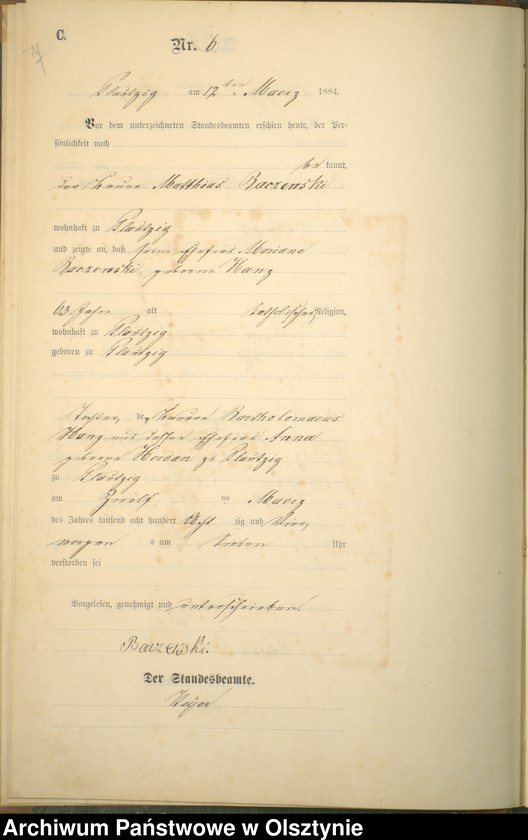 C.
Nr. 6
Plautzig am 12ten Maerz 1884.
Vor dem unterzeichneten Standesbeamten erschien heute, der Per-
sönlichkeit nach
be kannt,
der Bauer Matthias Raczenski
wohnhaft zu Plautzig
und zeigte an, daß seine Ehefrau Mariane
Raczenski, geborne Hanz
63 Jahre alt katholischer Religion,
wohnhaft zu Plautzig
geboren zu Plautzig
Tochter des Bauern Bartholomaeus
Hanz und dessen Ehefrau Anna
geborne zu Plautzig
zu Plautzig
am Zwölf ten Maerz
des Jahres tausend acht hundert Acht zig und Vier,
morgen s um Sieben Uhr
verstorben sei
Vorgelesen, genehmigt und unterschrieben.
Baczewski.
Der Standesbeamte.
Archiwum Państwowe w Olsztynie